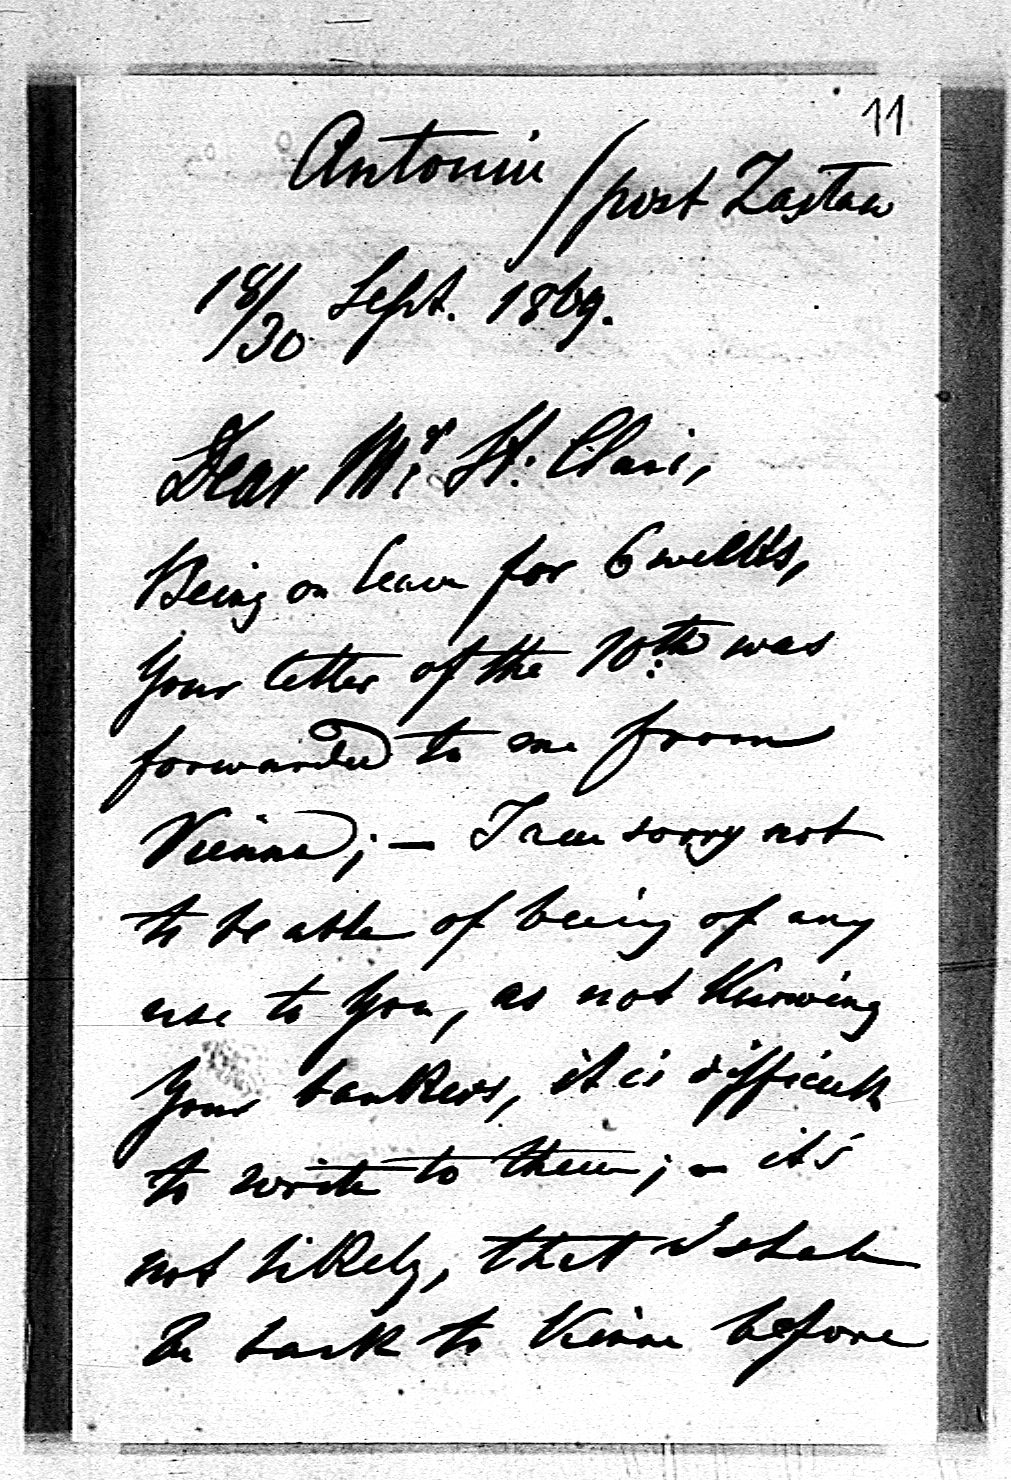 11
Antonin / post Zastaw
18/30 Sept. 1869.
Dear Mr. St. Clair,
Being on leave for 6 weekks,
Your letter of the 20th was
forwarded to me from
Vienna; — I am sorry not
to be able of being of any
use to You, as not Knowing
Your bankers, it is difficult
to write to them; — it's
not likely, that I shall
be back to Vienna before